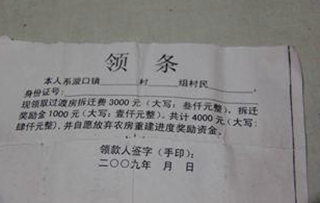 领 条
本人系漩口镇______村______组村民______，
身份证号：______
现领取过渡房拆迁费3000元（大写：叁仟元整），拆迁
奖励金1000元（大写：壹仟元整）。共计4000元（大写：
肆仟元整），并自愿放弃农房重建进度奖励资金。
领款人签字（手印）：
二〇〇九年 月 日